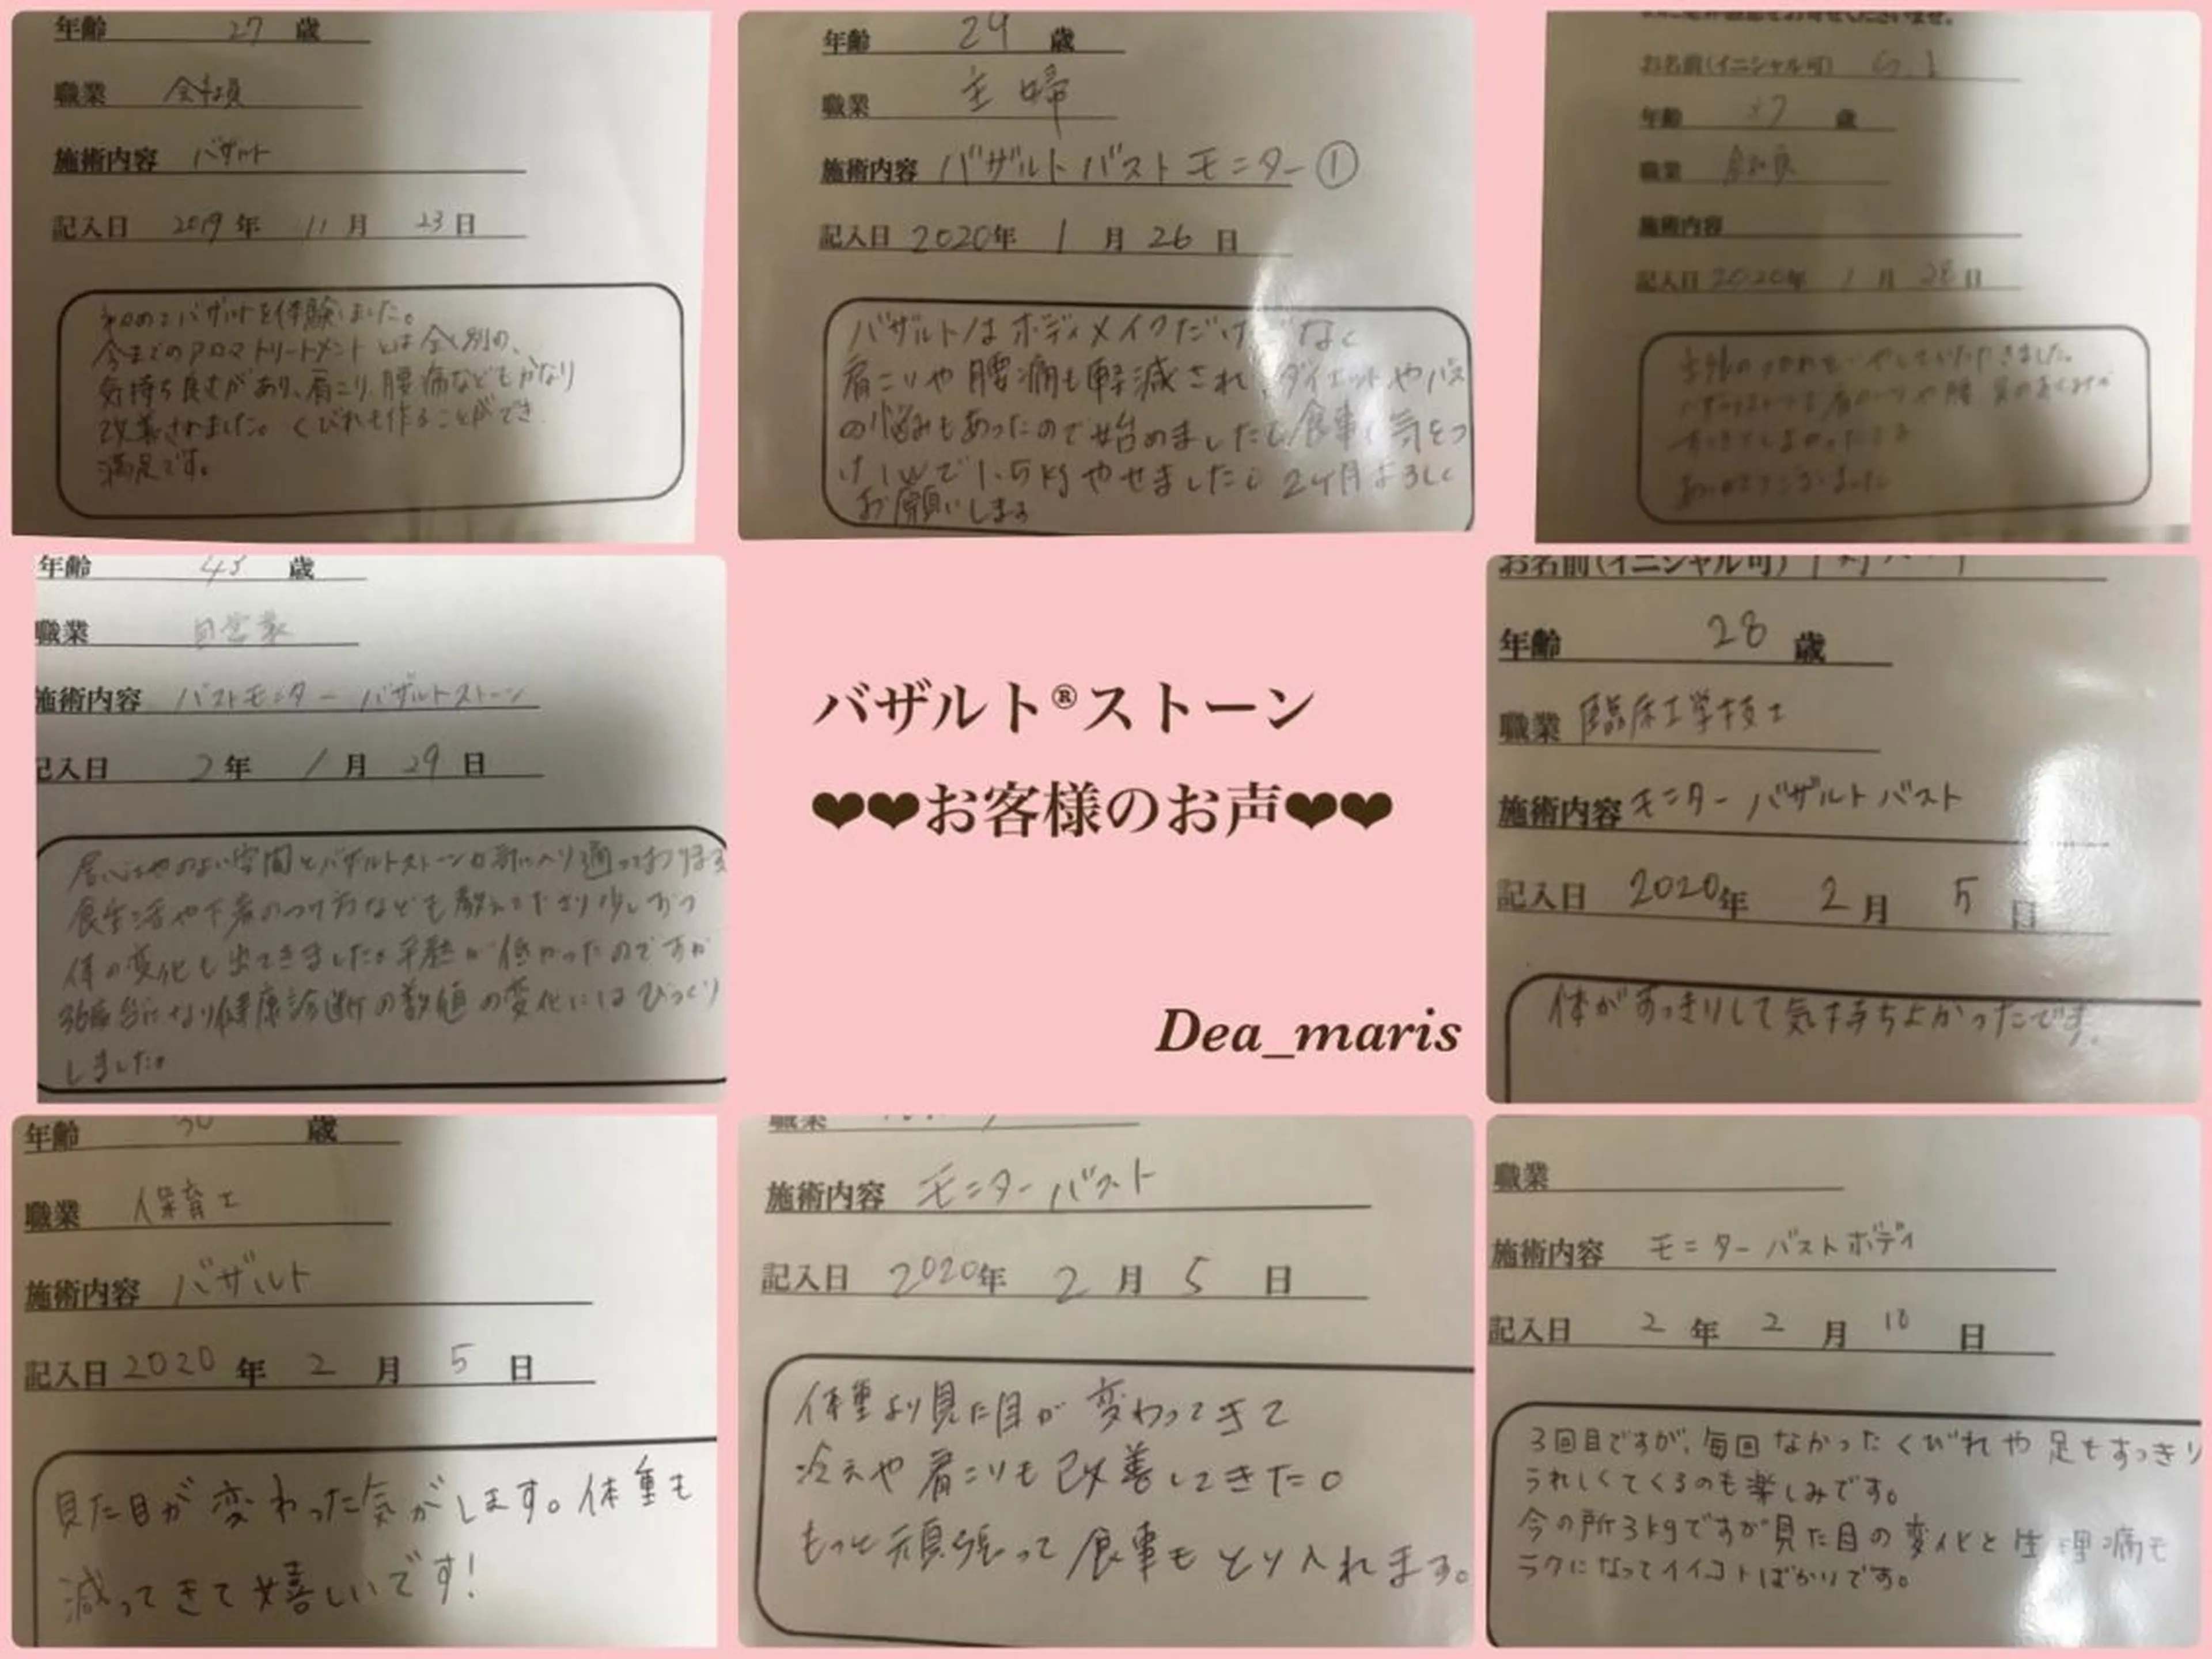 年齢 27 歳
職業 会社員
施術内容 バザルト
記入日 2019年 11月 23日
初めてバザルトを体験しました。
今までのアロマトリートメントとは全く別の、
気持ち良さがあり、肩こり、腰痛などもかなり
改善されました。くびれも作ることができ
満足です。
年齢 29 歳
職業 主婦
施術内容 バザルトバストモニター①
記入日 2020年 1月 26日
バザルトはボディメイクだけでなく
肩こりや腰痛も軽減され、ダイエットやバス
の悩みもあったので始めました。食事も気をつ
け1Wで1.5kgやせました。2ヶ月よろしく
お願いします
お名前(イニシャル可)
年齢 歳
職業 会社員
施術内容
記入日 2020年 1月 28日
ありがとうございました
年齢 歳
職業 自営業
施術内容 バストモニター バザルトストーン
記入日 2年 1月 29日
居心地のよい空間とバザルトストーンが気に入り通っております
食生活や下着のつけ方なども教えてくださり少しずつ
体の変化も出てきました。平熱が低かったのですが
36度台になり健康診断の数値の変化にはびっくり
しました。
バザルト®ストーン
❤❤お客様のお声❤❤
Dea_maris
お名前(イニシャル可)
年齢 28 歳
職業 臨床工学技士
施術内容 モニター バザルトバスト
記入日 2020年 2月 5日
体がすっきりして気持ちよかったです。
年齢 30 歳
職業 保育士
施術内容 バザルト
記入日 2020年 2月 5日
見た目が変わった気がします。体重も
減ってきて嬉しいです!
職業
施術内容 モニターバスト
記入日 2020年 2月 5日
体重より見た目が変わってきて
冷えや肩こりも改善してきた。
もっと頑張って食事もとり入れます。
職業
施術内容 モニターバストボディ
記入日 2年 2月 18日
3回目ですが、毎回なかったくびれや足もすっきり
うれしくてくるのも楽しみです。
今の所3kgですが見た目の変化と生理痛も
ラクになってイイコトばかりです。